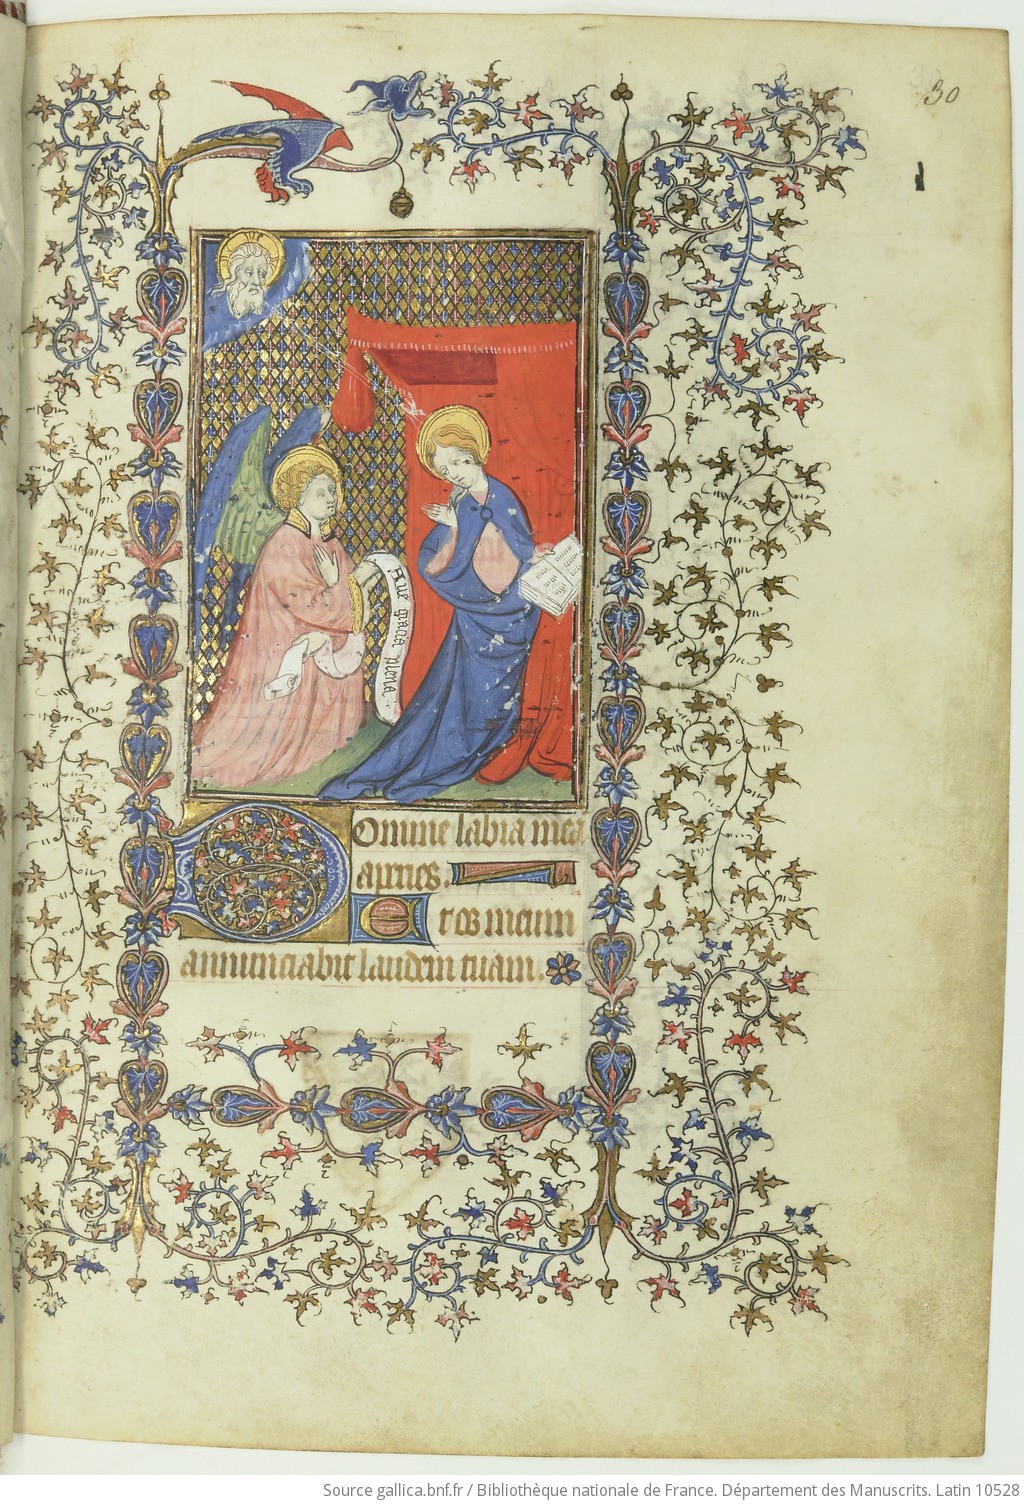 30
Aue gracia plena
Domine labia mea
aperies.
Et os meum
annunciabit laudem tuam.
Source gallica.bnf.fr / Bibliothèque nationale de France. Département des Manuscrits. Latin 10528